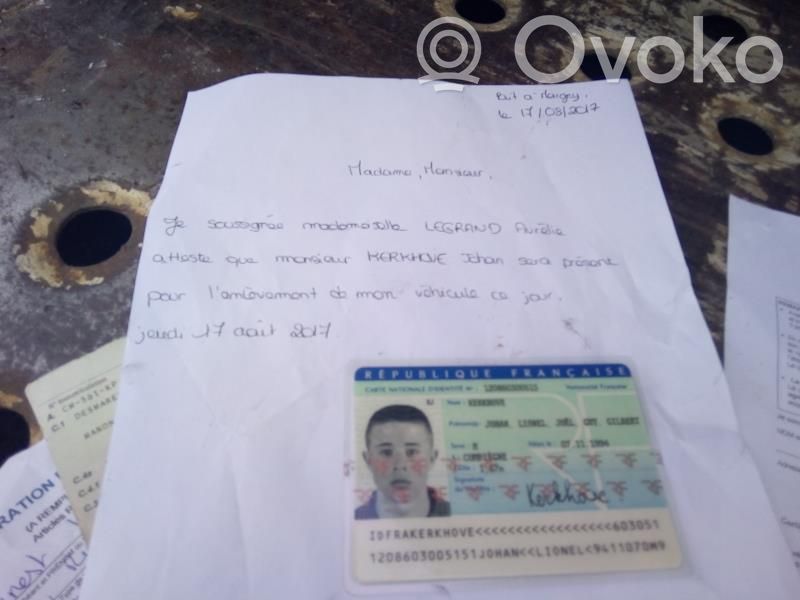 Ovoko
Fait à Margny,
le 17/08/2017
Madame, Monsieur,
Je soussignée mademoiselle LEGRAND Aurélie
atteste que monsieur KERKHOVE Johan sera présent
pour l'enlèvement de mon véhicule ce jour,
jeudi 17 août 2017
RÉPUBLIQUE FRANÇAISE
CARTE NATIONALE D'IDENTITÉ Nº : 120860300515 Nationalité Française
Nom : KERKHOVE
Prénom(s) : JOHAN, LIONEL, JOËL, GUY, GILBERT
Sexe : M Né(e) le : 07.11.1994
à : COMPIÈGNE
Taille : 1,67m
Signature
du titulaire : Kerkhove
IDFRAKERKHOVE<<<<<<<<<<<<<<<<<603051
1208603005151JOHAN<<LIONEL<9411070M9
A. CH-501-KP
C.1 DESMARE
MANON
C.4a
RATION
(A REMP
Articles R